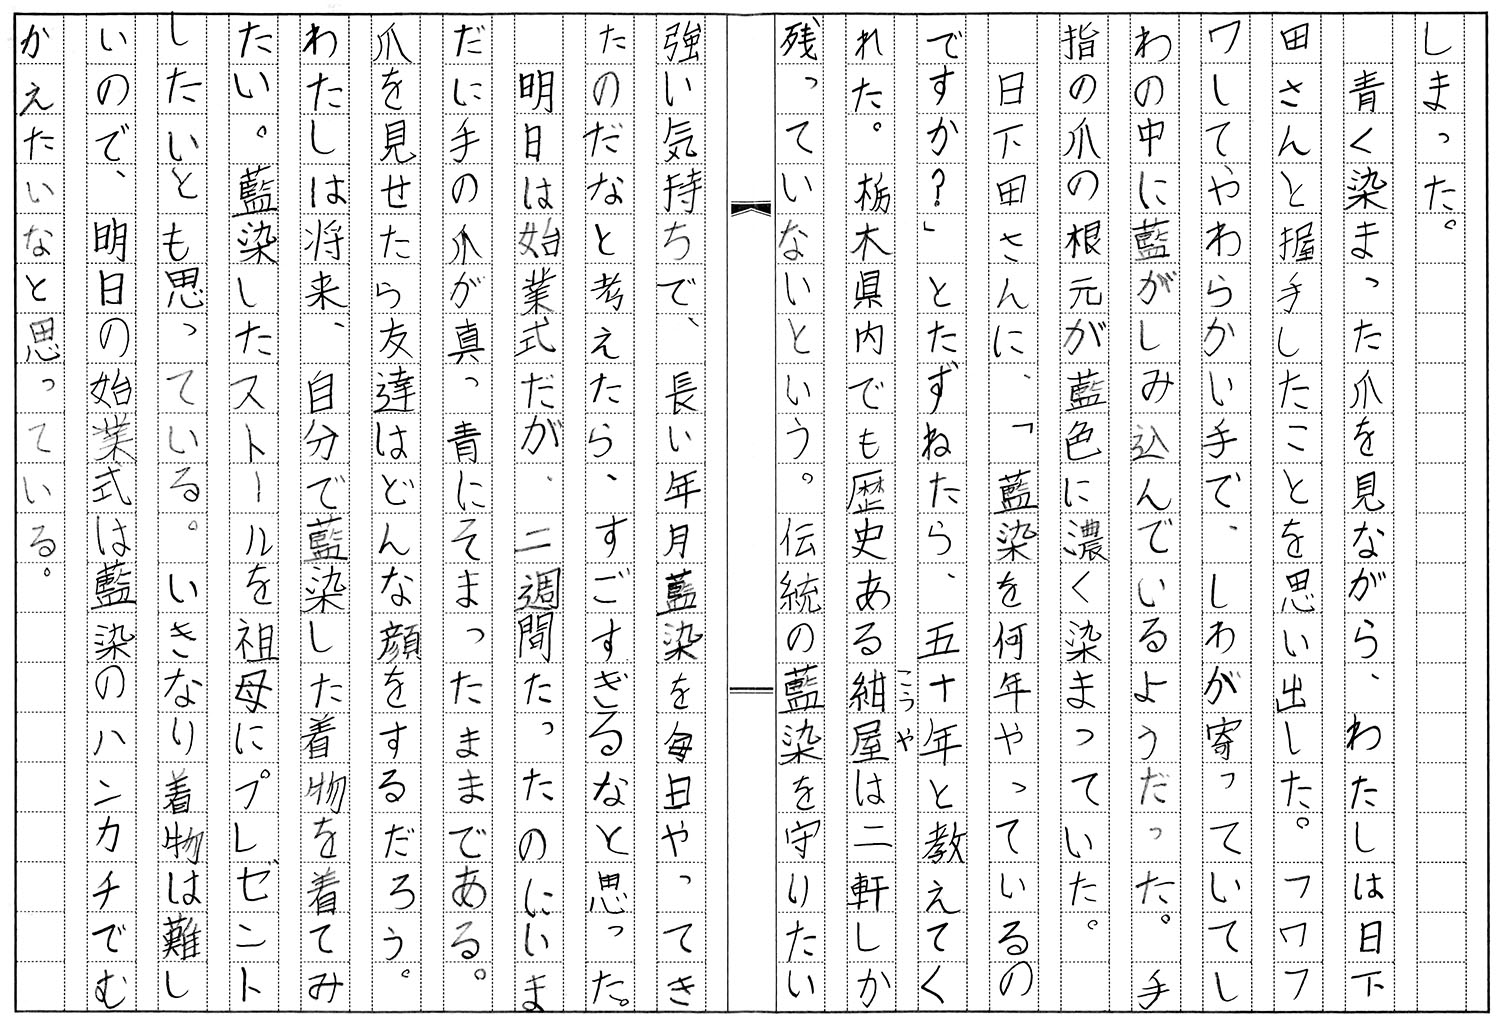 しまった。
　青く染まった爪を見ながら、わたしは日下
田さんと握手したことを思い出した。フワフ
ワしてやわらかい手で、しわが寄っていてし
わの中に藍がしみ込んでいるようだった。手
指の爪の根元が藍色に濃く染まっていた。
　日下田さんに、「藍染を何年やっているの
ですか？」とたずねたら、五十年と教えてく
れた。栃木県内でも歴史ある紺屋は二軒しか
こうや
残っていないという。伝統の藍染を守りたい
強い気持ちで、長い年月藍染を毎日やってき
たのだなと考えたら、すごすぎるなと思った。
　明日は始業式だが、二週間たったのにいま
だに手の爪が真っ青にそまったままである。
爪を見せたら友達はどんな顔をするだろう。
わたしは将来、自分で藍染した着物を着てみ
たい。藍染したストールを祖母にプレゼント
したいとも思っている。いきなり着物は難し
いので、明日の始業式は藍染のハンカチでむ
かえたいなと思っている。